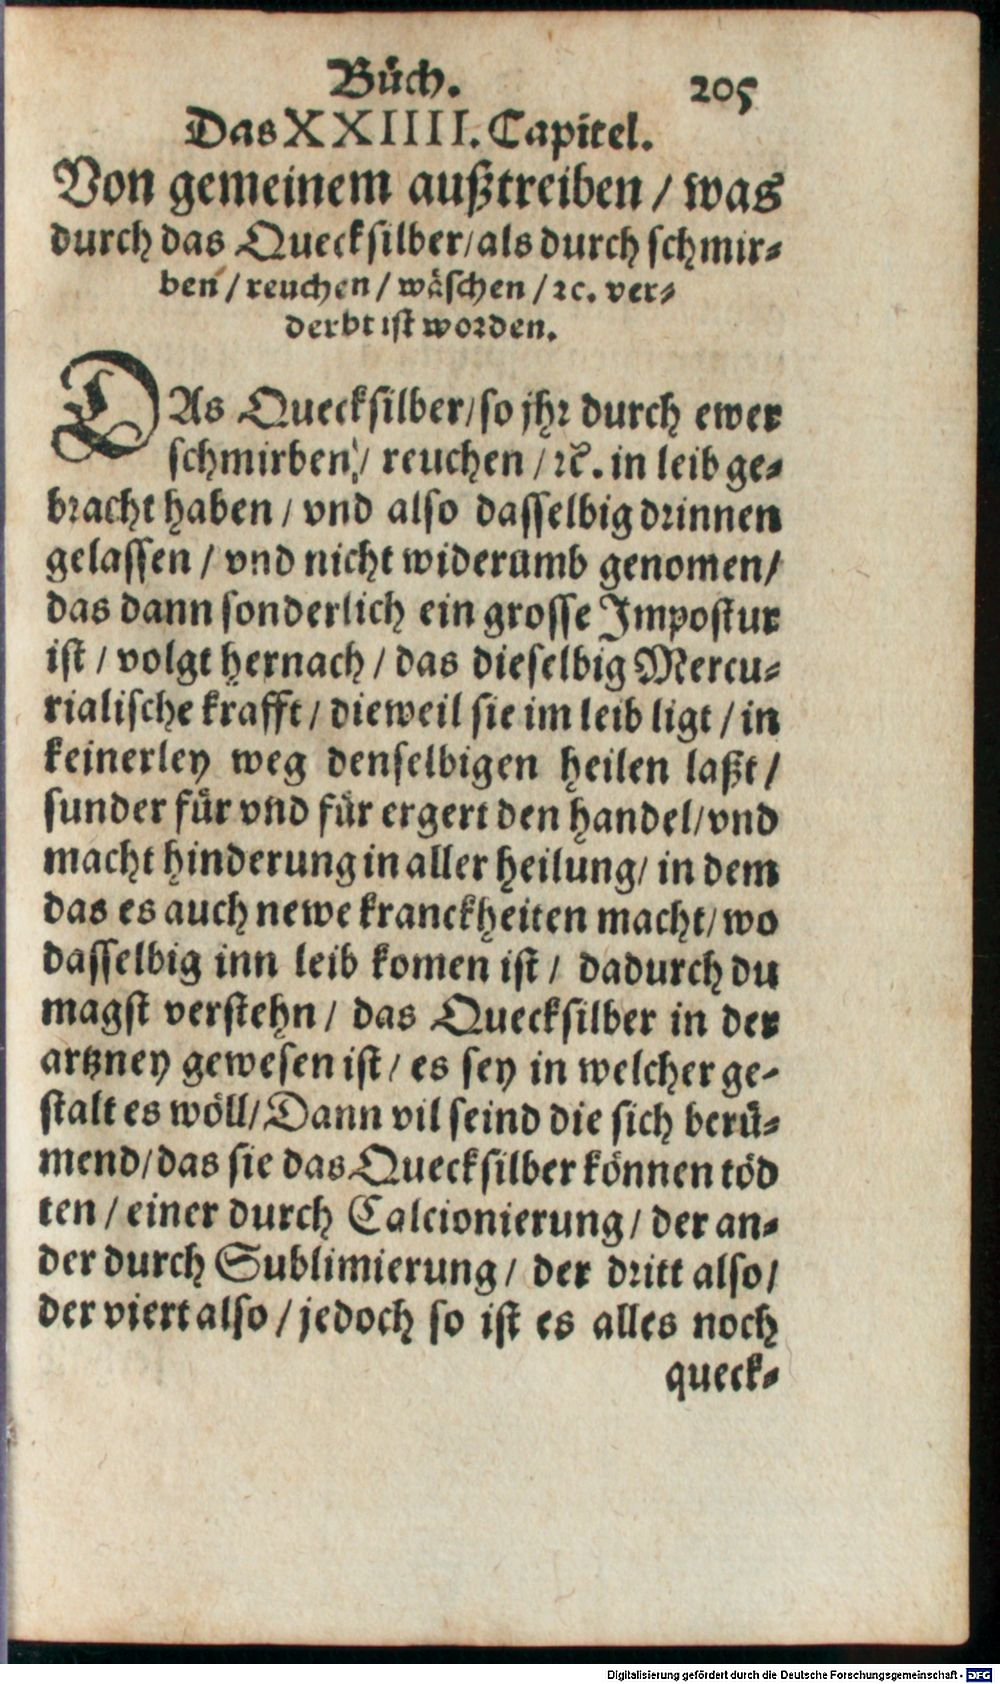 Bůch. 205
Das XXIIII. Capitel.
Von gemeinem außtreiben / was
durch das Quecksilber / als durch schmir⸗
ben / reuchen / wäschen / ꝛc. ver⸗
derbt ist worden.
DAs Quecksilber / so jhr durch ewer
schmirben / reuchen / ꝛc. in leib ge⸗
bracht haben / vnd also dasselbig drinnen
gelassen / vnd nicht widerumb genomen /
das dann sonderlich ein grosse Impostur
ist / volgt hernach / das dieselbig Mercu⸗
rialische krafft / dieweil sie im leib ligt / in
keinerley weg denselbigen heilen laßt /
sunder fůr vnd fůr ergert den handel / vnd
macht hinderung in aller heilung / in dem
das es auch newe kranckheiten macht / wo
dasselbig inn leib komen ist / dadurch du
magst verstehn / das Quecksilber in der
artzney gewesen ist / es sey in welcher ge-
stalt es wöll / Dann vil seind die sich berů⸗
mend / das sie das Quecksilber können töd
ten / einer durch Calcionierung / der an⸗
der durch Sublimierung / der dritt also /
der viert also / jedoch so ist es alles noch
queck⸗
Digitalisierung gefördert durch die Deutsche Forschungsgemeinschaft - DFG